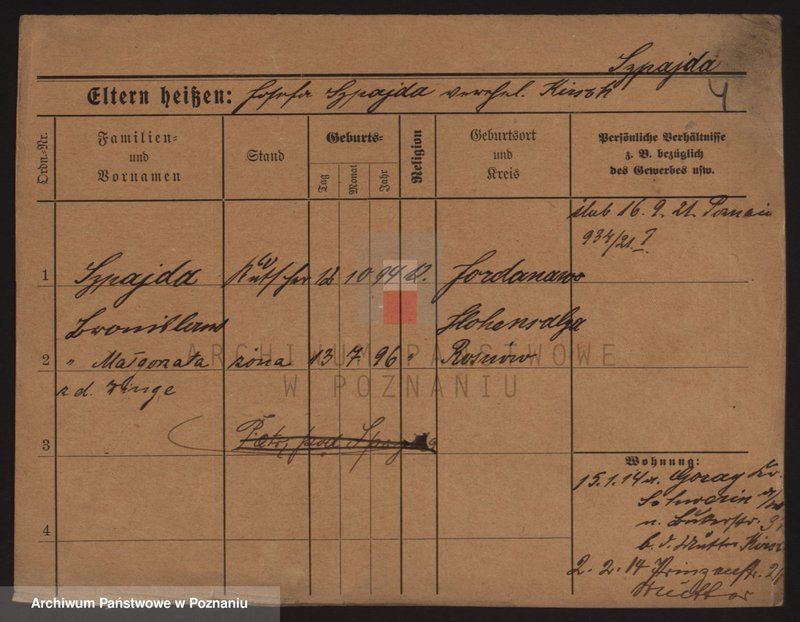 Szpajda
Eltern heißen: Josefa Szpajda verehel. Kirsch
4
Ordn.-Nr.
Familien- und Vornamen
Stand
Geburts-
Tag
Monat
Jahr
Religion
Geburtsort und Kreis
Persönliche Verhältnisse
z. B. bezüglich
des Gewerbes usw.
ślub 16. 9. 21. Poznań
934/21. I
1 Szpajda Kutscher 12 10 94 Jordanowo
Bronislaus Hohensalza
2 " Małgorzata żona 13 7. 96 " Rosnówo
z d.
3
Wohnung:
15.1.14 v. Goray Kr.
Schwerin a/W
n. Bukerstr. 9
b. d. Mutter Kirsch
4
2. 2. 14 Prinzenstr.
ARCHIWUM PAŃSTWOWE
W POZNANIU
Archiwum Państwowe w Poznaniu